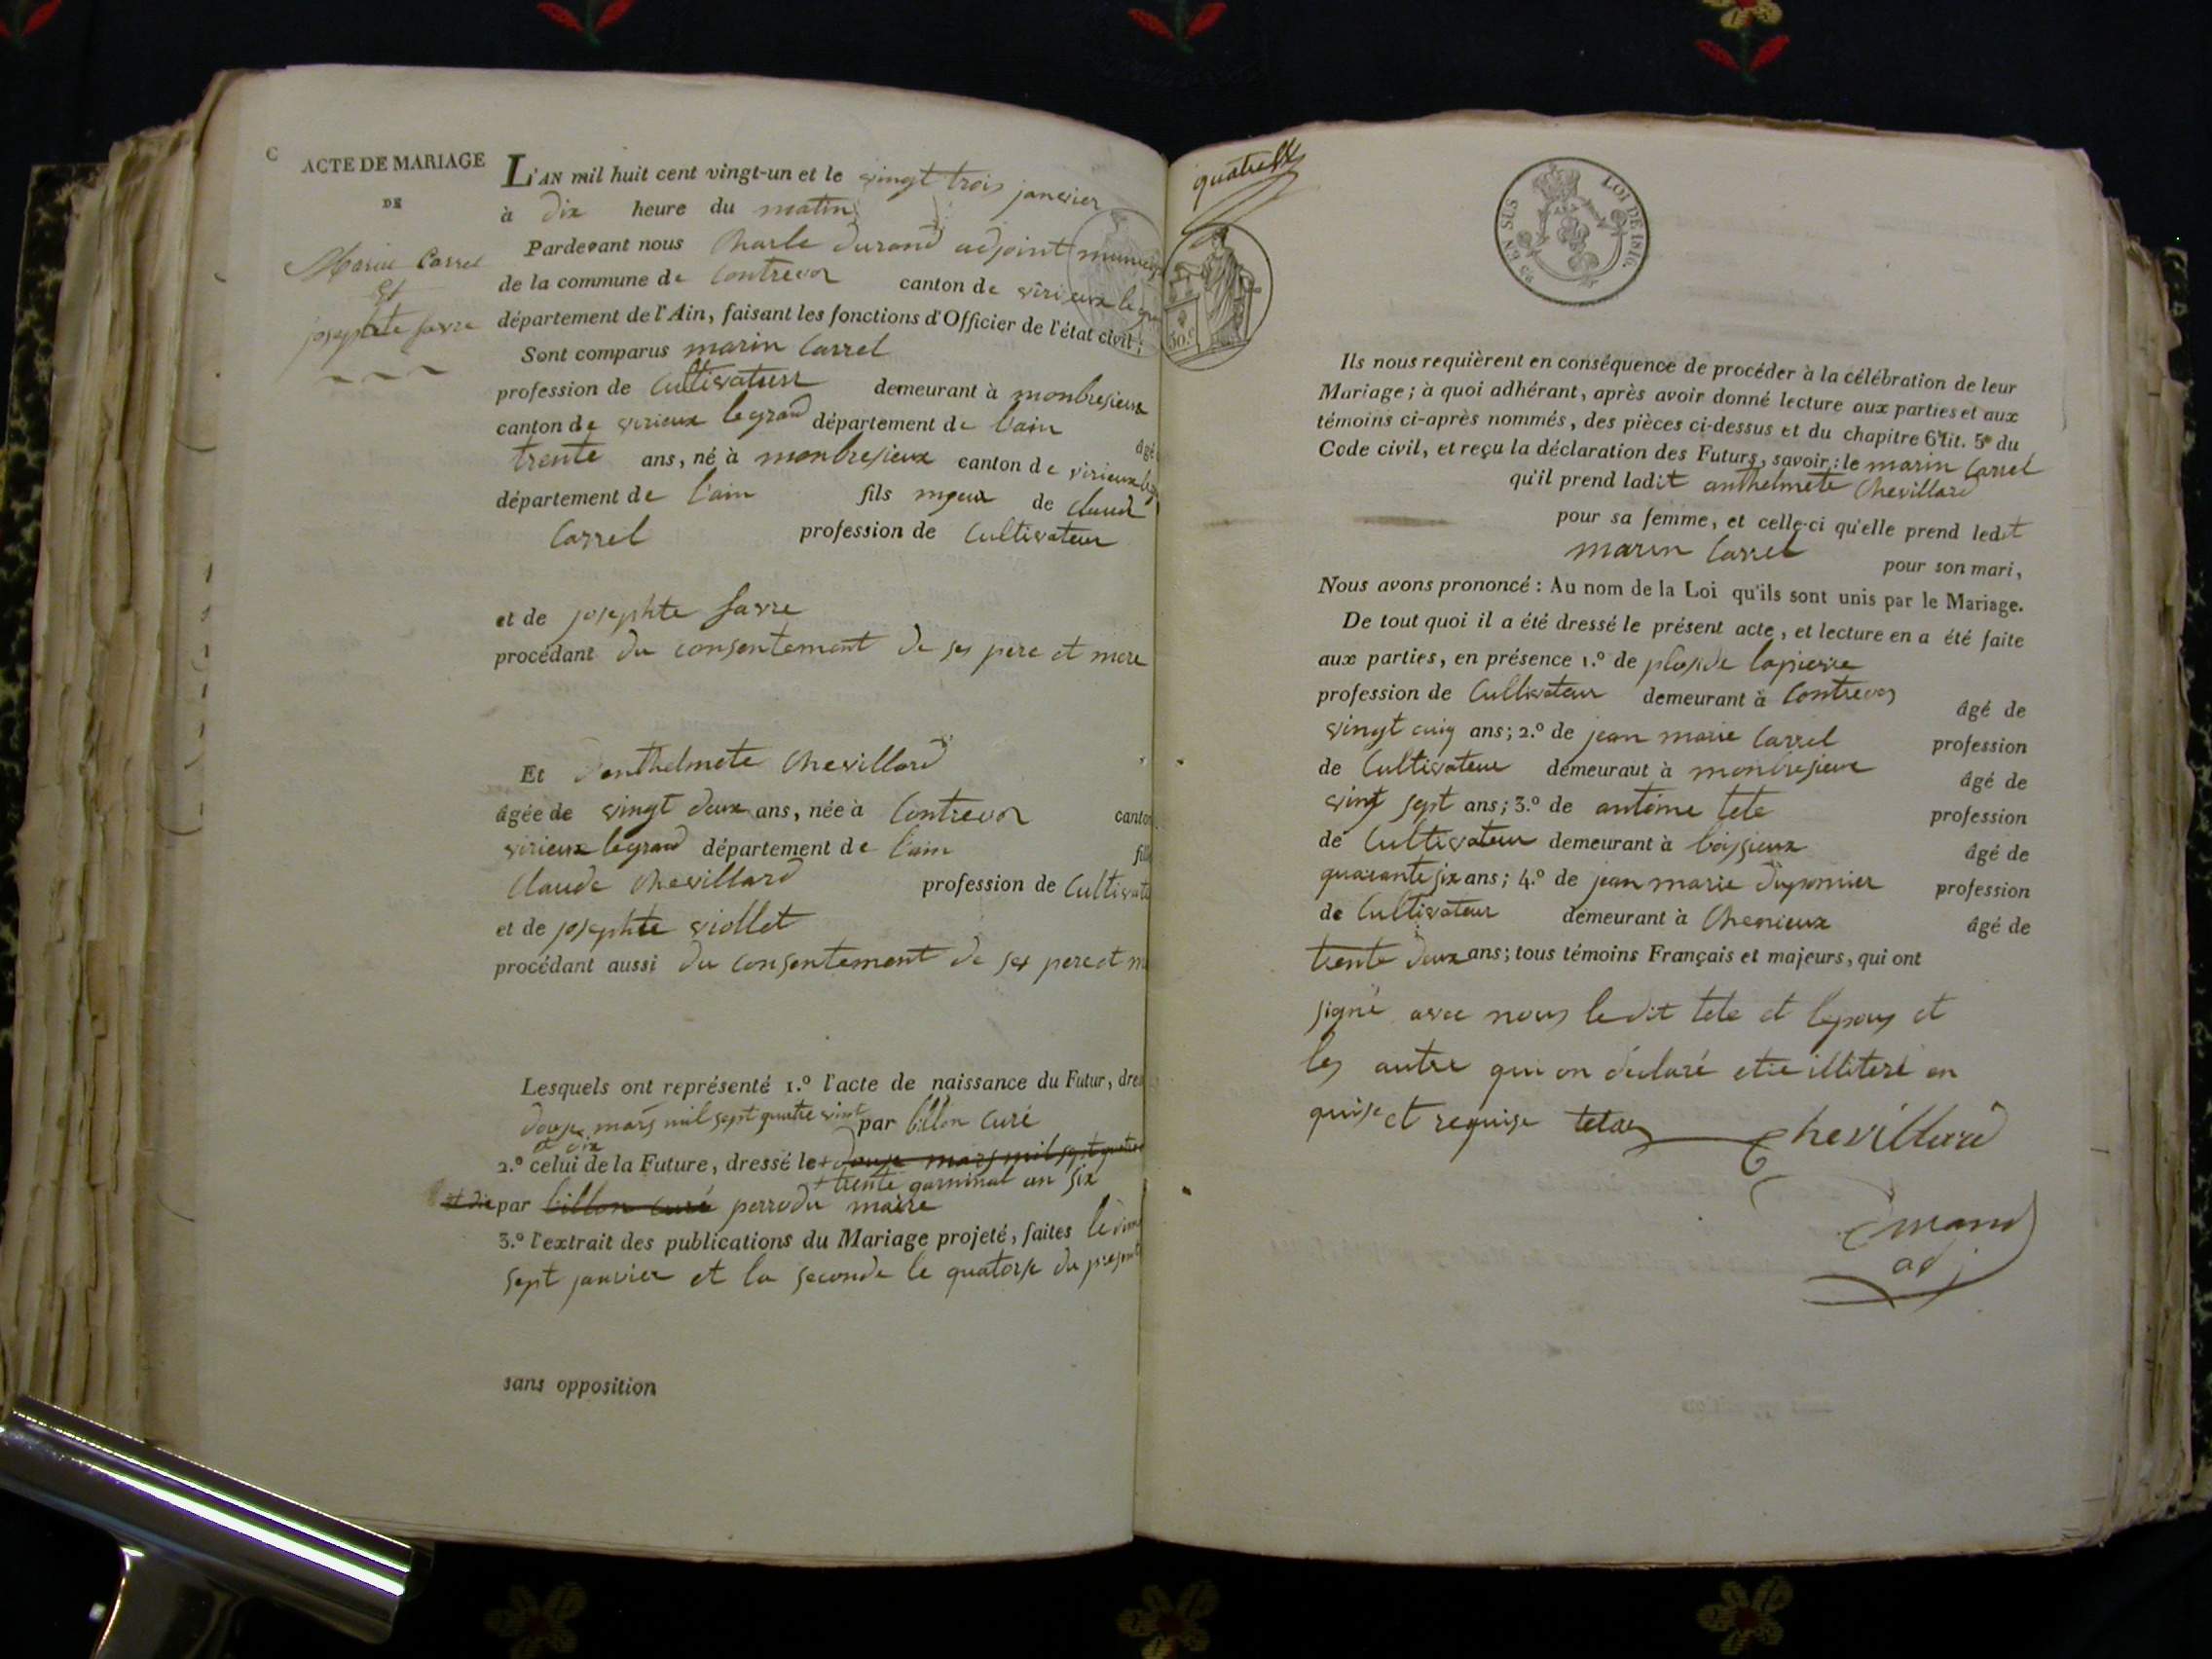 C ACTE DE MARIAGE
DE
Marin Carrel
Et
josephte favre
L'AN mil huit cent vingt-un et le vingt trois janvier
à dix heure du matin
Pardevant nous Charle durand adjoint
de la commune de Contrevoz canton de virieux le
département de l'Ain, faisant les fonctions d'Officier de l'état civil;
Sont comparus marin Carrel
profession de Cultivateur demeurant à monbresieux
canton de virieux legrand département de l'ain âgé
trente ans, né à monbresieux canton de virieux
département de l'ain fils mjeur de claude
Carrel profession de Cultivateur
et de josephte favre
procédant du consentement de ses pere et mere
Et d'anthelmete Chevillard
âgée de vingt deux ans, née à Contrevoz canton
virieux legrand département de l'ain fille
Claude Chevillard profession de Cultivate
et de josephte viollet
procédant aussi du consentement de ses pere et m
Lesquels ont représenté 1.º l'acte de naissance du Futur, dres
douze mars mil sept quatre vint par billon curé
et dix
2.º celui de la Future, dressé le + douze mars mil sept quatre
+ trente garminal an six
et dix par billon curé perrodu maire
3.º l'extrait des publications du Mariage projeté, faites le dim
sept janvier et la seconde le quatorze du present
sans opposition
quatre
50c
25 EN SUS LOI DE 1816.
Ils nous requièrent en conséquence de procéder à la célébration de leur
Mariage; à quoi adhérant, après avoir donné lecture aux parties et aux
témoins ci-après nommés, des pièces ci-dessus et du chapitre 6 tit. 5e du
Code civil, et reçu la déclaration des Futurs, savoir: le marin Carrel
qu'il prend ladit anthelmete Chevillard
pour sa femme, et celle-ci qu'elle prend ledit
marin Carrel pour son mari,
Nous avons prononcé: Au nom de la Loi qu'ils sont unis par le Mariage.
De tout quoi il a été dressé le présent acte, et lecture en a été faite
aux parties, en présence 1.º de lapierre
profession de Cultivateur demeurant à Contrevoz âgé de
vingt cinq ans; 2.º de jean marie Carrel profession
de Cultivateur demeurant à monbresieux âgé de
vint sept ans; 3.º de antoine tete profession
de Cultivateur demeurant à boissieux âgé de
quarante six ans; 4.º de jean marie duponier profession
de Cultivateur demeurant à Chemieux âgé de
trente deux ans; tous témoins Français et majeurs, qui ont
signé avec nous le dit tete et lepoux et
les autre qui on déclaré etre illiteré en
quise et requise Chevillard
Durand
adj